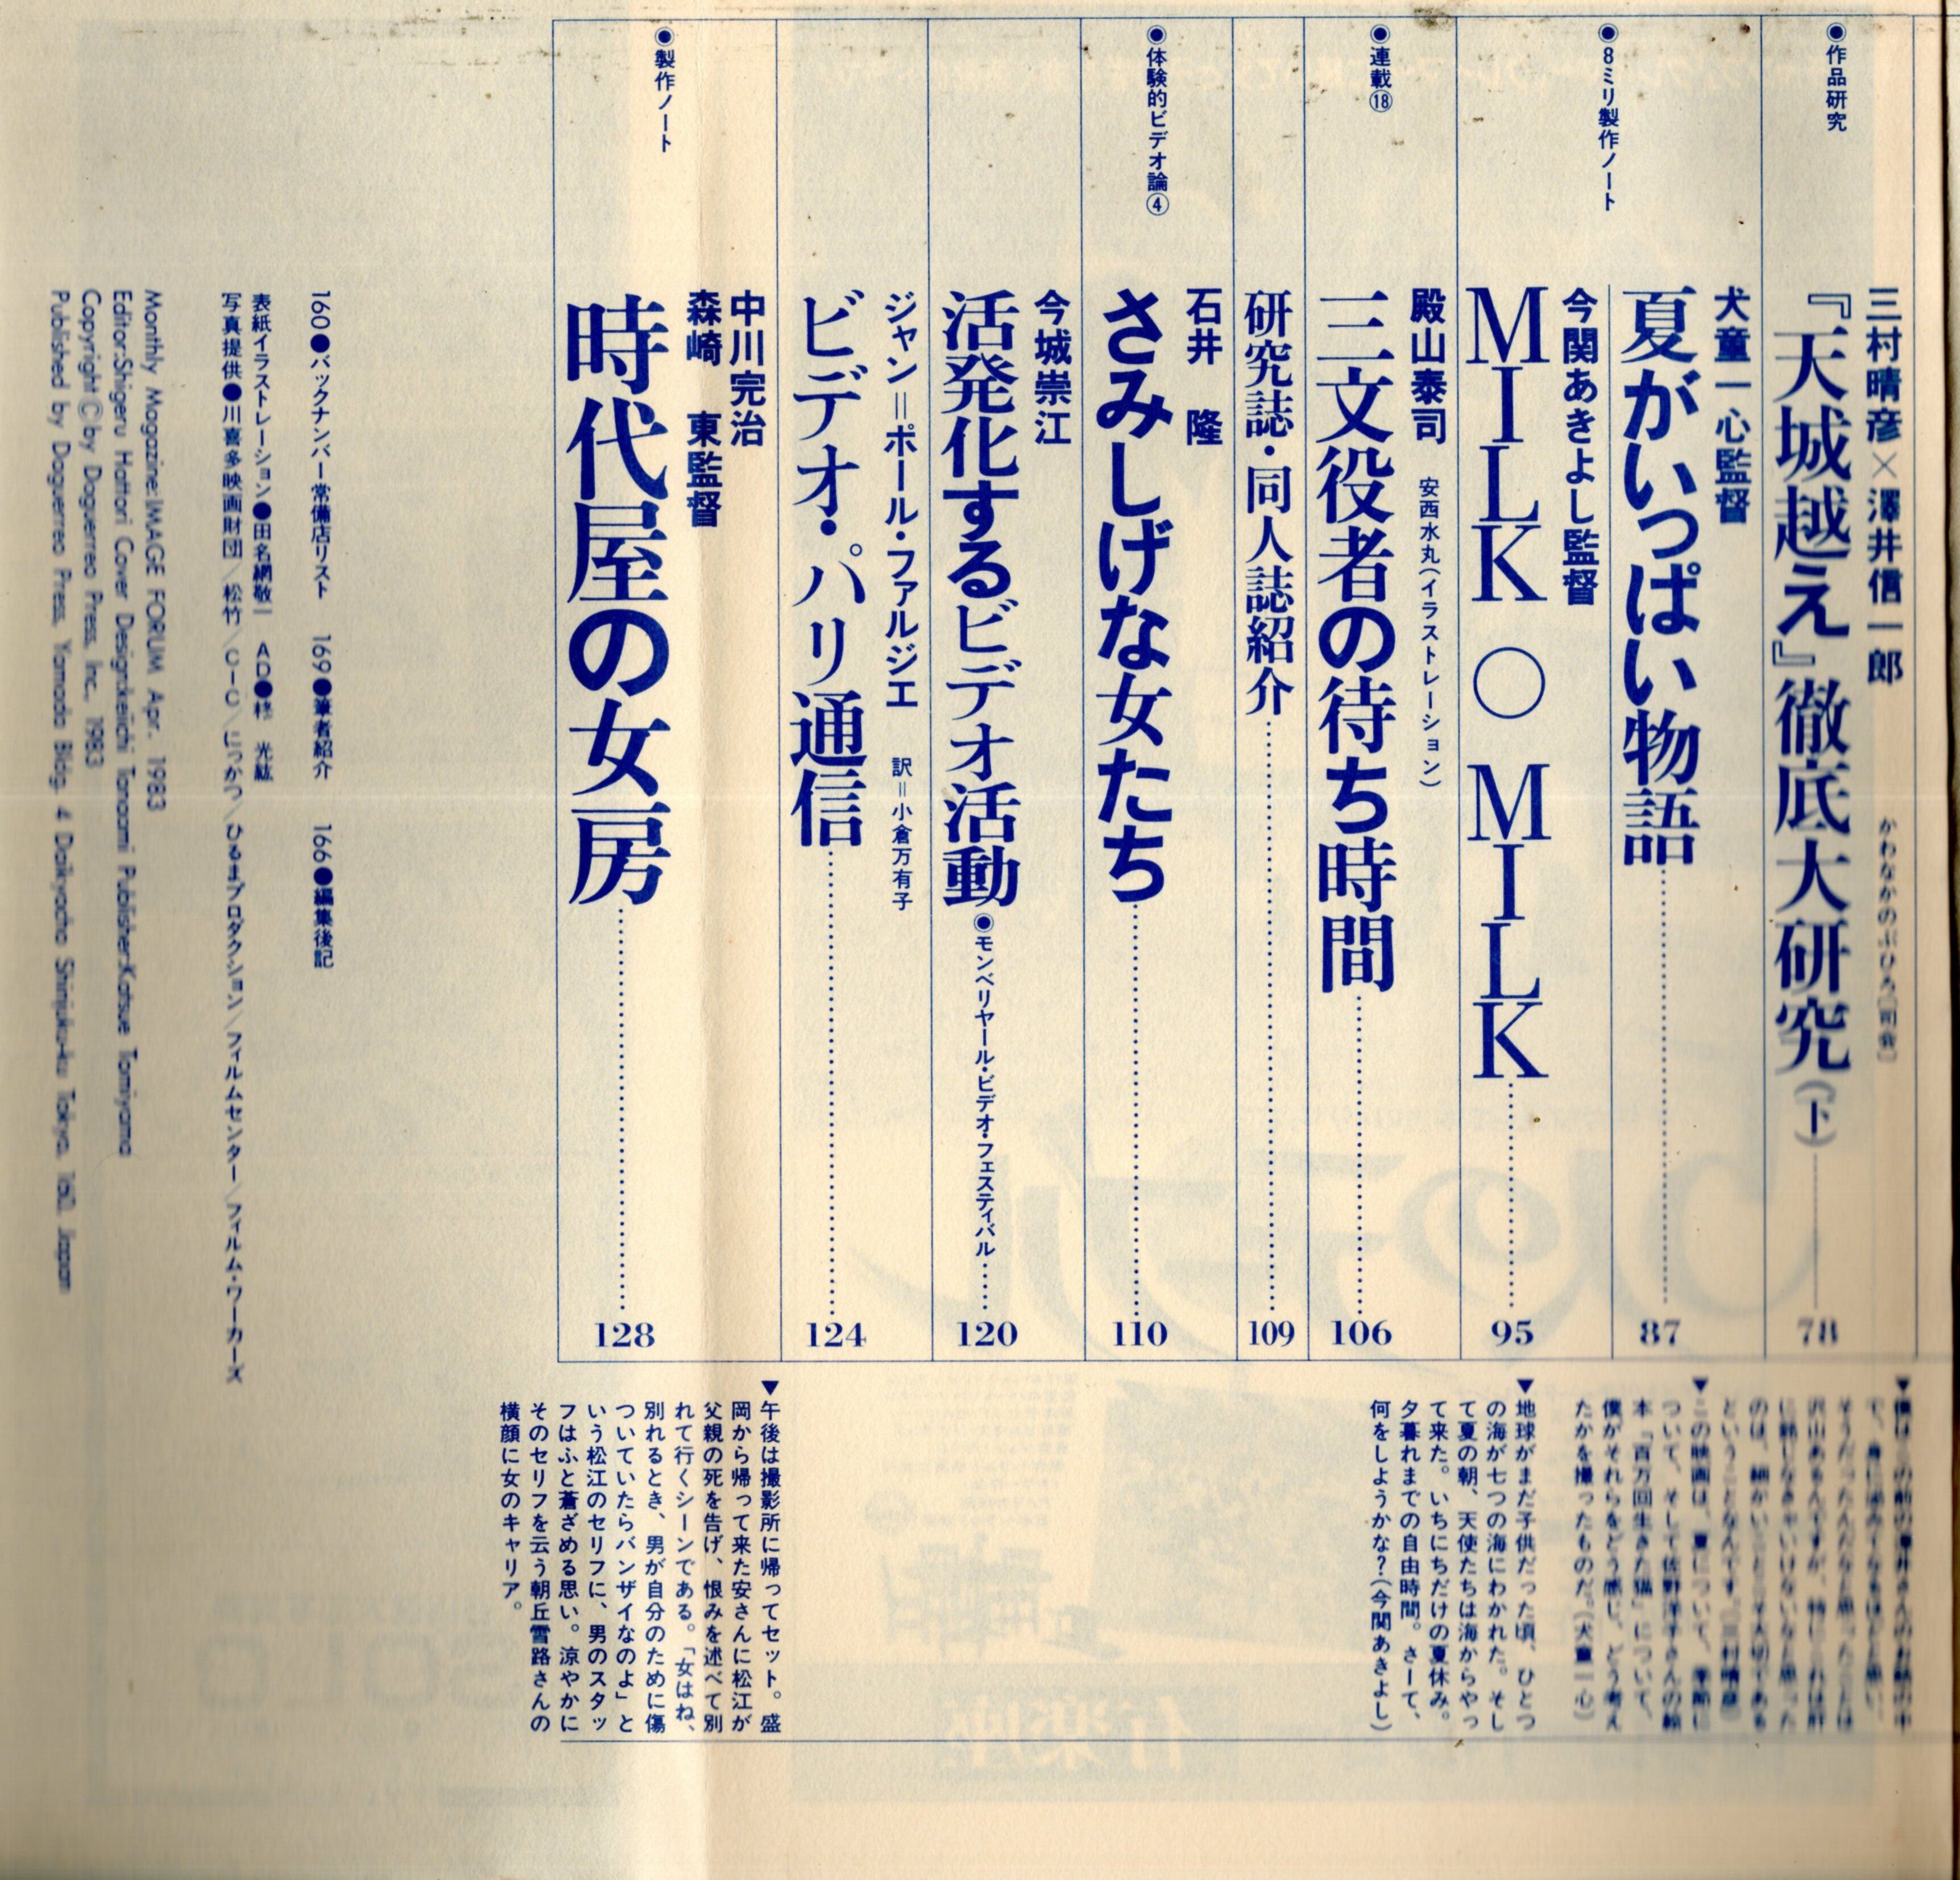 ●作品研究
三村晴彦×澤井信一郎
かわなかのぶひろ〔司会〕
『天城越え』徹底大研究(下)
78
●8ミリ製作ノート
犬童一心監督
夏がいっぱい物語
87
今関あきよし監督
MILK○MILK
95
●連載⑱
殿山泰司 安西水丸(イラストレーション)
三文役者の待ち時間
106
研究誌・同人誌紹介
109
●体験的ビデオ論④
石井 隆
さみしげな女たち
110
今城崇江
活発化するビデオ活動●モンベリヤール・ビデオ・フェスティバル
120
ジャン=ポール・ファルジエ 訳=小倉万有子
ビデオ・パリ通信
124
●製作ノート
中川完治
森崎 東監督
時代屋の女房
128
▼この映画は、夏について、季節に
ついて、そして佐野洋子さんの絵
本「百万回生きた猫」について、
僕がそれらをどう感じ、どう考え
たかを撮ったものだ。(犬童一心)
▼地球がまだ子供だった頃、ひとつ
の海が七つの海にわかれた。そし
て夏の朝、天使たちは海からやっ
て来た。いちにちだけの夏休み。
夕暮れまでの自由時間。さーて、
何をしようかな?(今関あきよし)
▼午後は撮影所に帰ってセット。盛
岡から帰って来た安さんに松江が
父親の死を告げ、恨みを述べて別
れて行くシーンである。「女はね、
別れるとき、男が自分のために傷
ついていたらバンザイなのよ」と
いう松江のセリフに、男のスタッ
フはふと蒼ざめる思い。涼やかに
そのセリフを云う朝丘雪路さんの
横顔に女のキャリア。
160●バックナンバー常備店リスト 169●筆者紹介 166●編集後記
表紙イラストレーション●田名網敬一 AD●柊 光紘
写真提供●川喜多映画財団/松竹/CIC/にっかつ/ひるまプロダクション/フィルムセンター/フィルム・ワーカーズ
Monthly Magazine:IMAGE FORUM Apr. 1983
Editor:Shigeru Hattori Cover Design:Keiichi Tanaami Publisher:Katsue Tomiyama
Copyright Ⓒ by Daguerreo Press, Inc., 1983
Published by Daguerreo Press, Yamada Bldg. 4 Daikyocho Shinjuku-ku Tokyo, 160, Japan